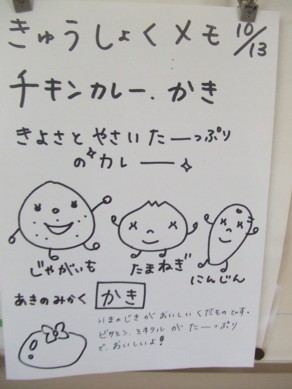 きゅうしょくメモ 10/13
チキンカレー、かき
きよさと やさい たーっぷり
の カレー
じゃがいも たまねぎ にんじん
あきのみかく かき
いまのじきがおいしいくだものです。
ビタミン、ミネラル が たーっぷり
で、おいしいよ!